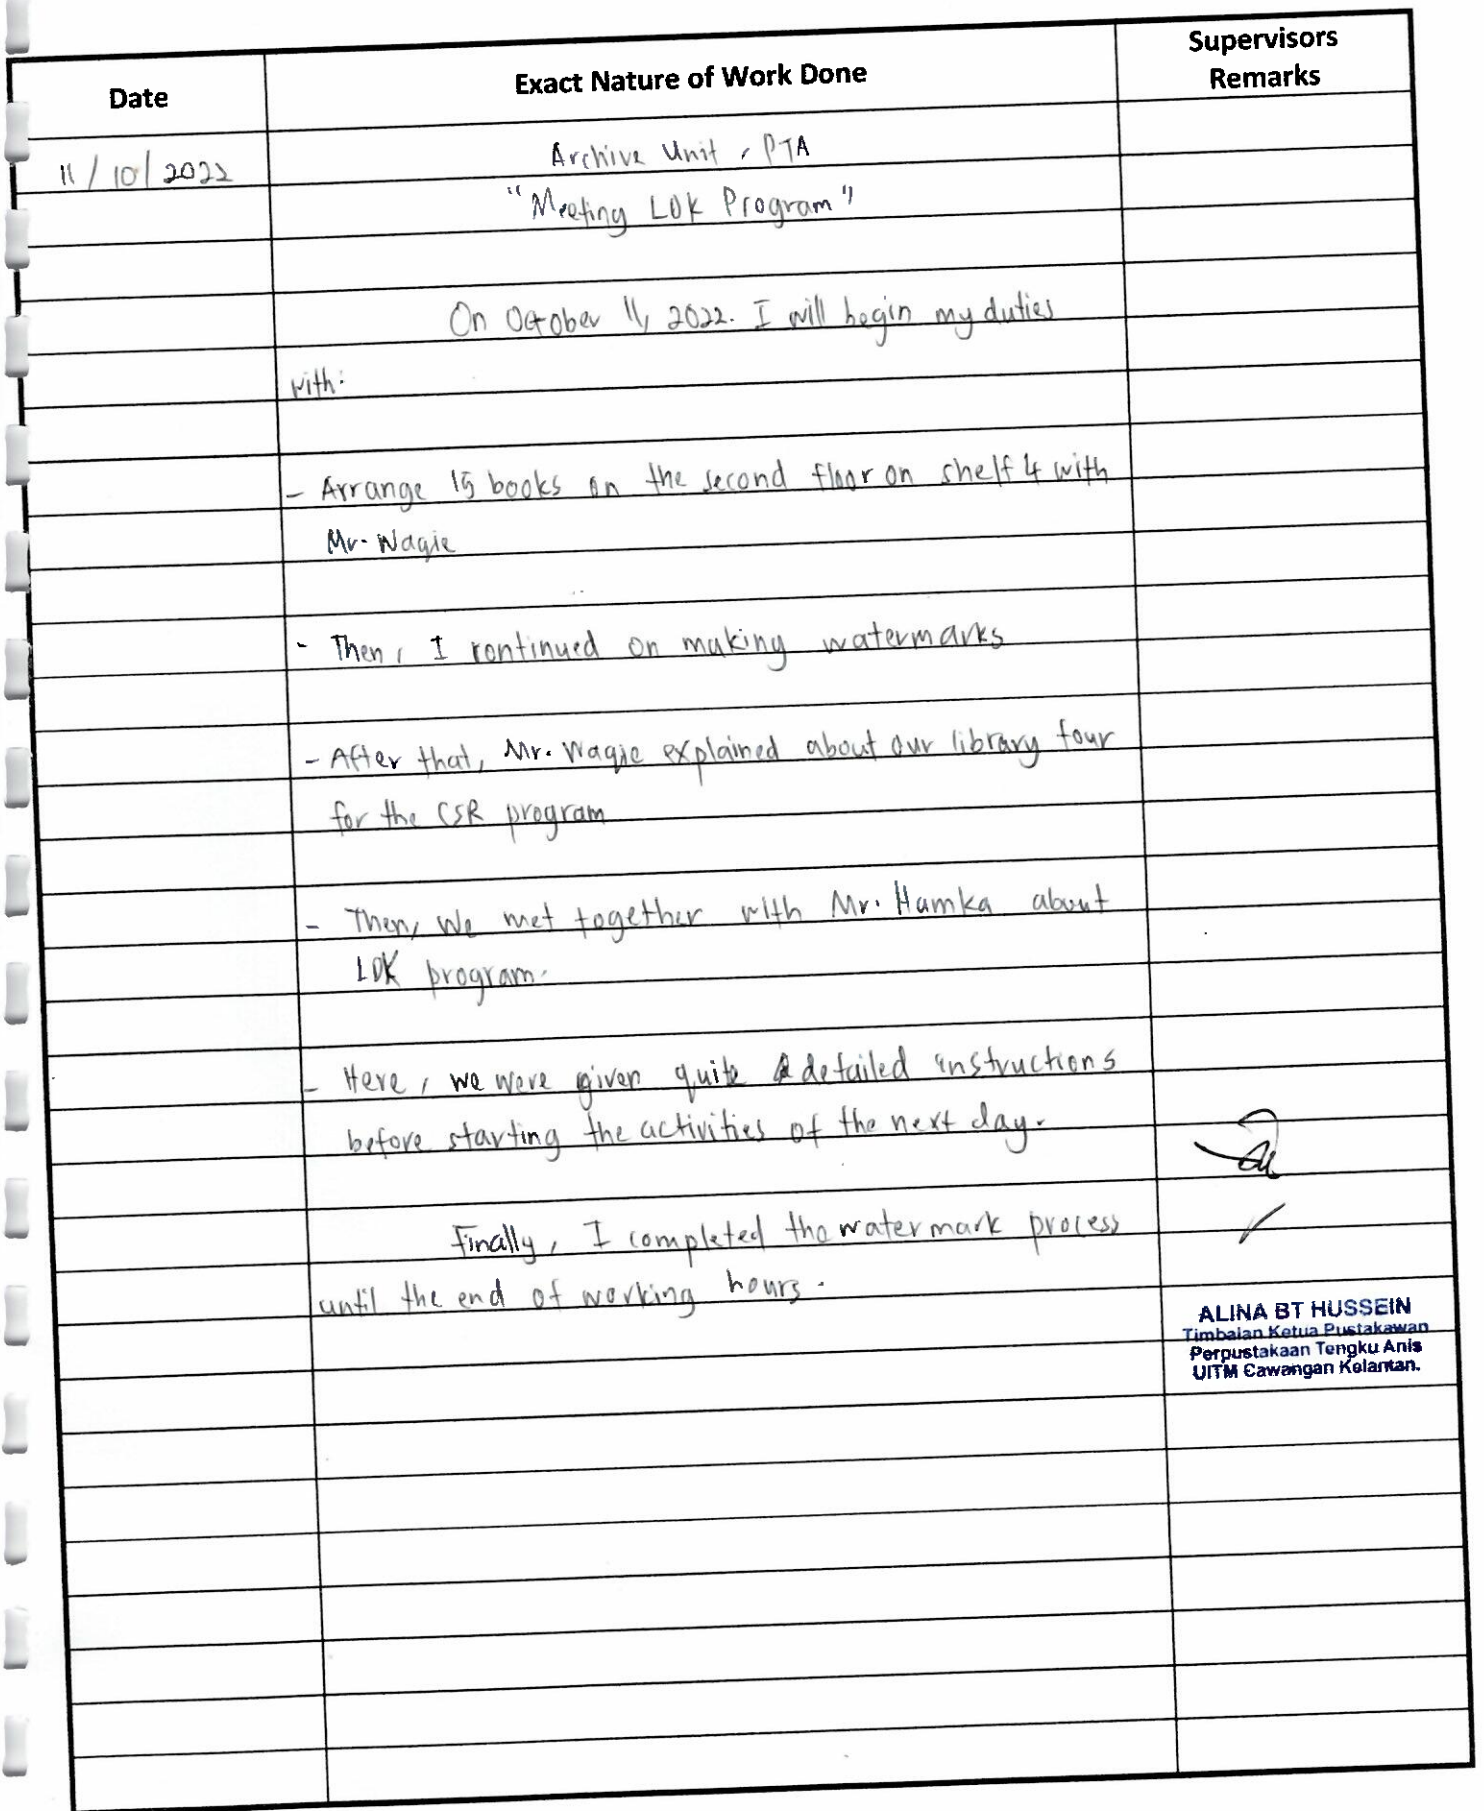 Date
Exact Nature of Work Done
Supervisors
Remarks
11/10/2022
Archive Unit, PTA
"Meeting LDK Program"
On October 11, 2022. I will begin my duties
with:
- Arrange 15 books on the second floor on shelf 4 with
Mr. Waqie
- Then, I continued on making watermarks
- After that, Mr. Waqie explained about our library tour
for the CSR program
- Then, we met together with Mr. Hamka about
LDK program.
- Here, we were given quite a detailed instructions
before starting the activities of the next day.
Finally, I completed the watermark process
until the end of working hours.
ALINA BT HUSSEIN
Timbalan Ketua Pustakawan
Perpustakaan Tengku Anis
UITM Cawangan Kelantan.